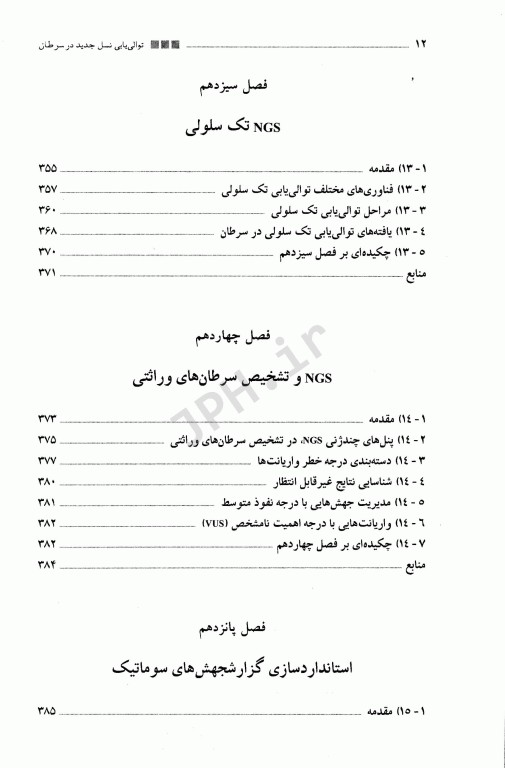 ۱۲ توالی‌یابی نسل جدید در سرطان
فصل سیزدهم
NGS تک سلولی
۱-۱۳) مقدمه ۳۵۵
۲-۱۳) فناوری‌های مختلف توالی‌یابی تک سلولی ۳۵۷
۳-۱۳) مراحل توالی‌یابی تک سلولی ۳۶۰
۴-۱۳) یافته‌های توالی‌یابی تک سلولی در سرطان ۳۶۸
۵-۱۳) چکیده‌ای بر فصل سیزدهم ۳۷۰
منابع ۳۷۱
فصل چهاردهم
NGS و تشخیص سرطان‌های وراثتی
۱-۱۴) مقدمه ۳۷۳
۲-۱۴) پنل‌های چندژنی NGS، در تشخیص سرطان‌های وراثتی ۳۷۵
۳-۱۴) دسته‌بندی درجه خطر واریانت‌ها ۳۷۷
۴-۱۴) شناسایی نتایج غیرقابل انتظار ۳۸۰
۵-۱۴) مدیریت جهش‌هایی با درجه نفوذ متوسط ۳۸۱
۶-۱۴) واریانت‌هایی با درجه اهمیت نامشخص (VUS) ۳۸۲
۷-۱۴) چکیده‌ای بر فصل چهاردهم ۳۸۲
منابع ۳۸۴
فصل پانزدهم
استانداردسازی گزارشجهش‌های سوماتیک
۱-۱۵) مقدمه ۳۸۵
JPH.ir